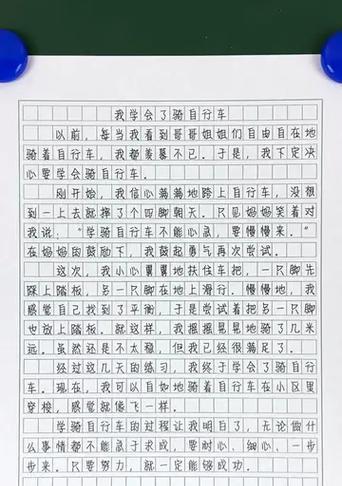 我学会了骑自行车
以前，每当我看到哥哥姐姐们自由自在地
骑着自行车，我都羡慕不已。于是，我下定决
心要学会骑自行车。
刚开始，我信心满满地跨上自行车，没想
到一上去就摔了个四脚朝天。只见妈妈笑着对
我说：“学骑自行车不能心急，要慢慢来。”
在妈妈的鼓励下，我鼓起勇气再次尝试。
这次，我小心翼翼地扶住车把，一只脚先
踩上踏板，另一只脚在地上滑行。慢慢地，我
感觉自己找到了平衡，于是尝试着把另一只脚
也放上踏板。就这样，我摇摇晃晃地骑了几米
远。虽然还是不太稳，但我已经很满足了。
经过这几天的练习，我终于学会了骑自行
车。现在，我可以自如地骑着自行车在小区里
穿梭，感觉就像飞一样。
学骑自行车的过程让我明白了，无论做什
么事情都不能急于求成，要耐心、细心，一步
步来。只要努力，就一定能够成功。